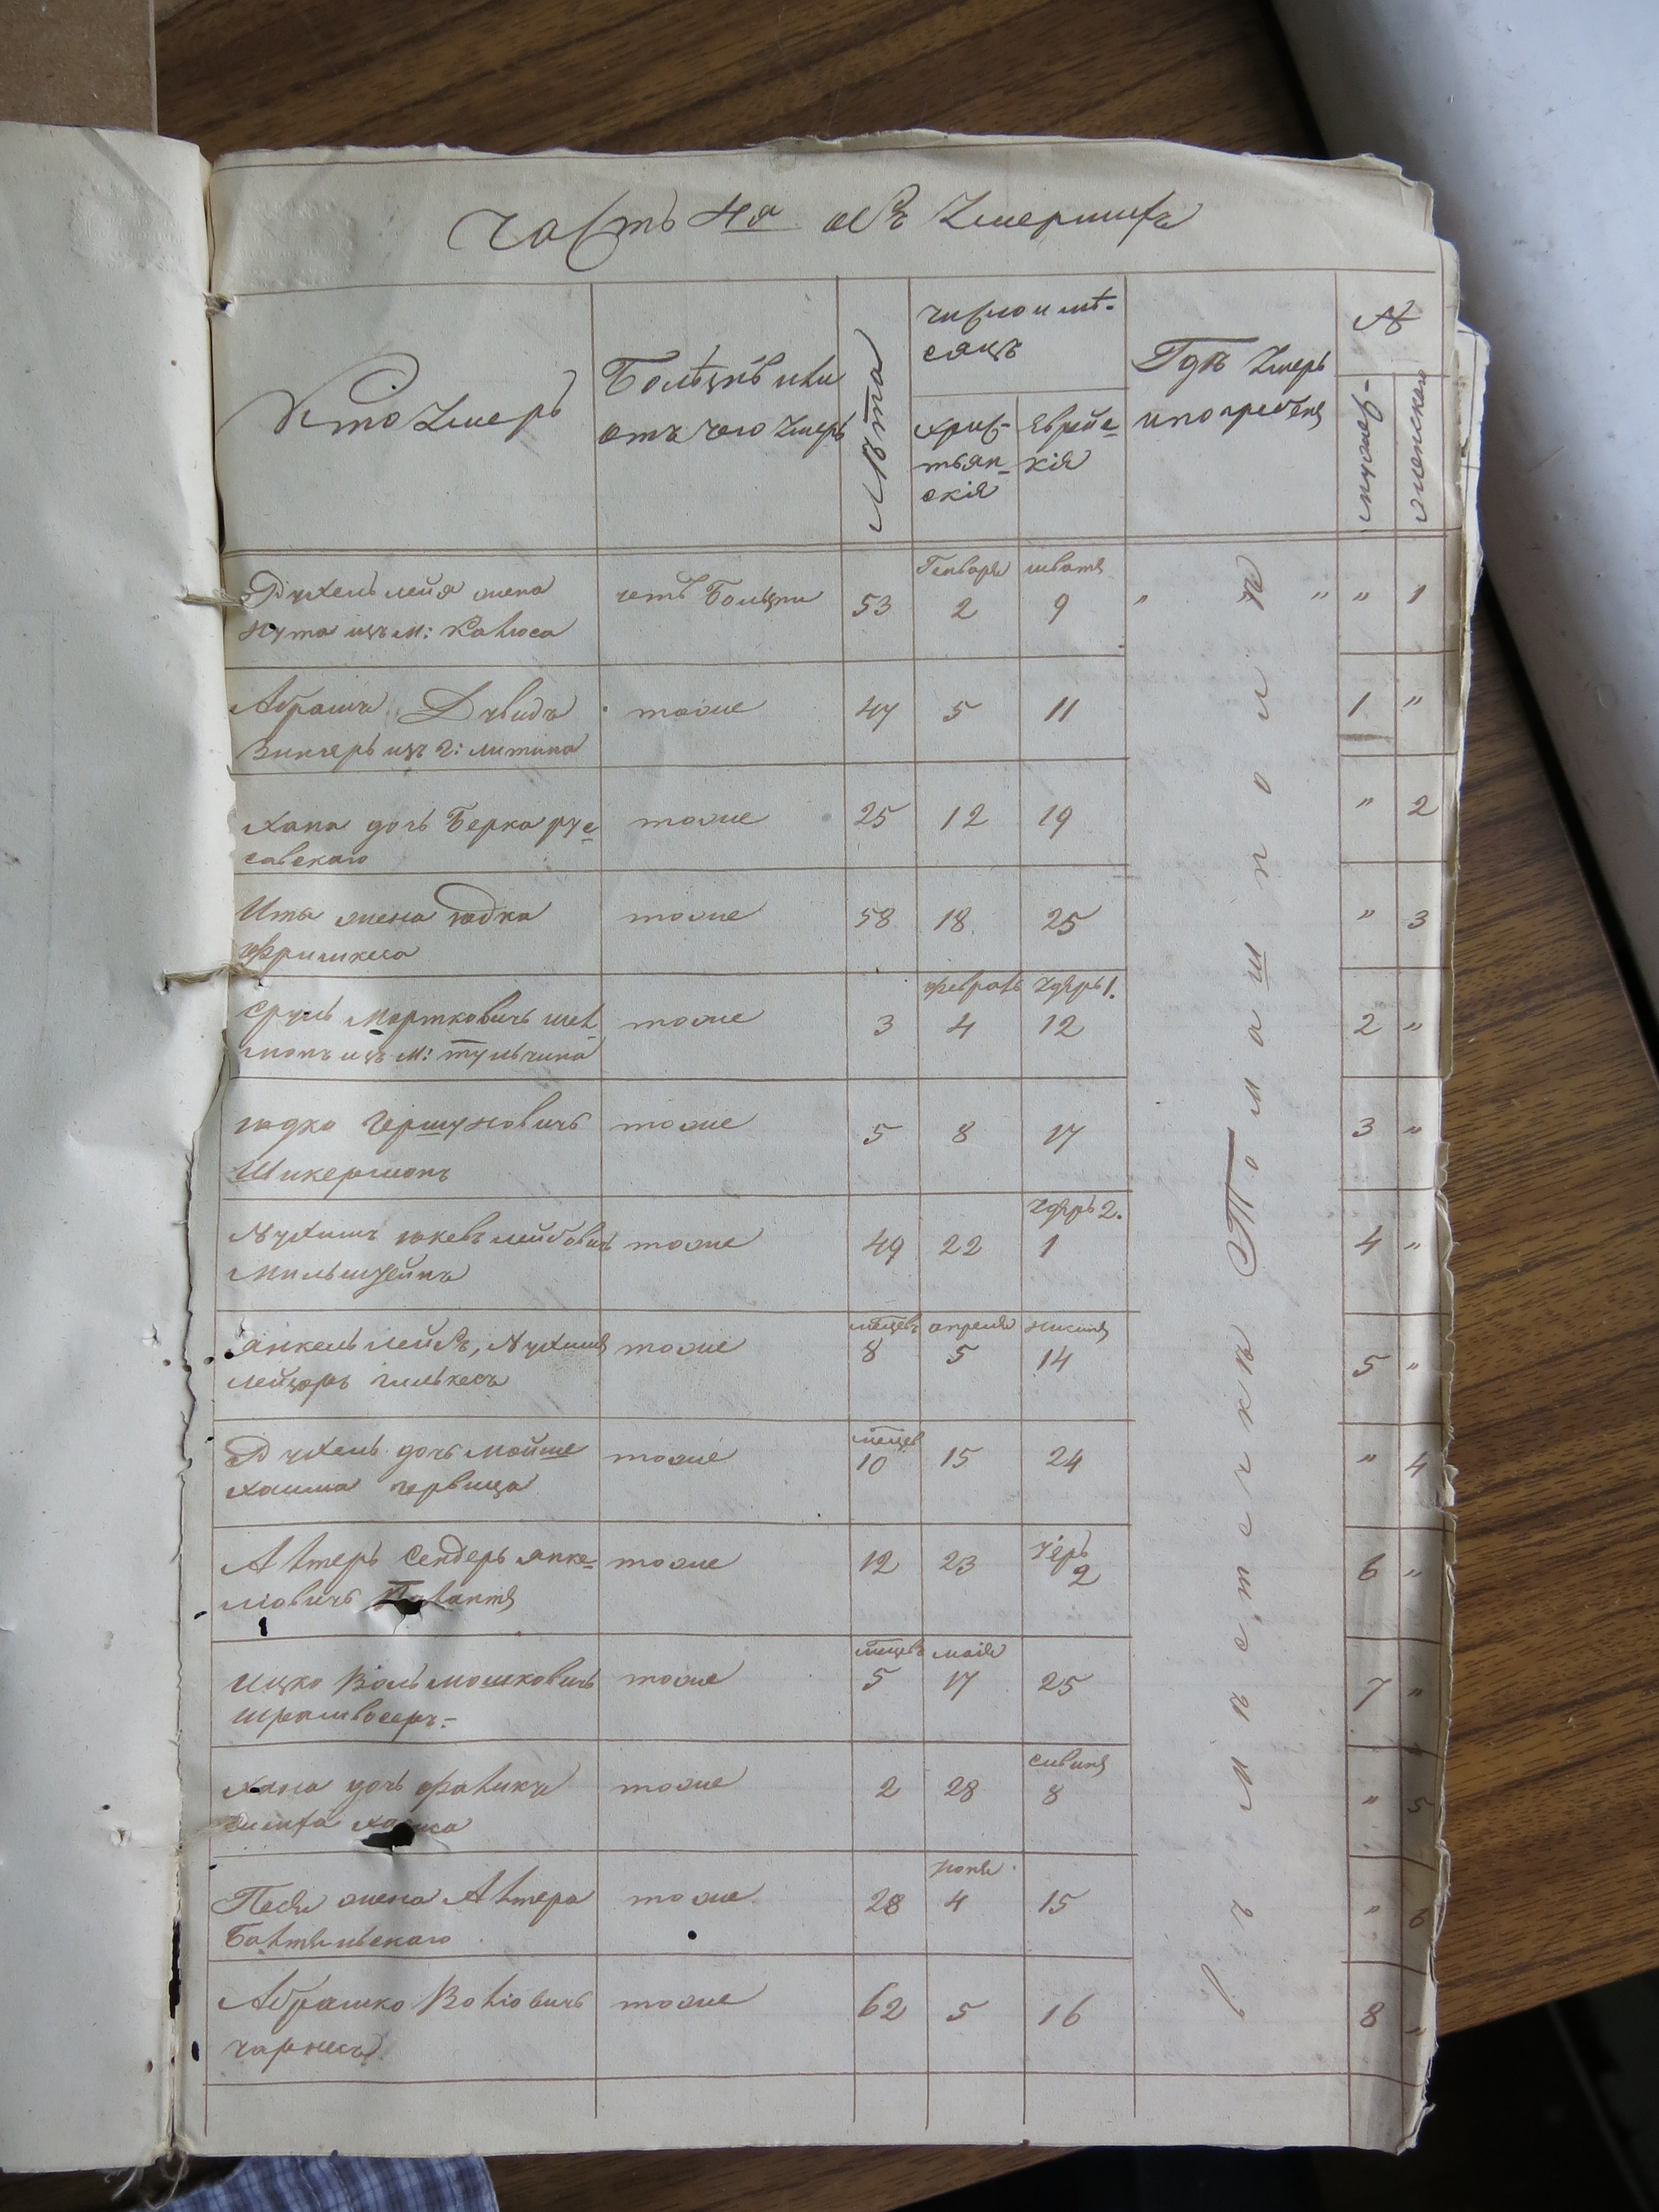 Часть 4я объ Умершихъ
Кто Умеръ
Болѣзнь или
отъ чего Умеръ
Лѣта
число и мѣ-
сяцъ
Христ-
тьян-
скія
Еврейс-
кія
Гдѣ Умеръ
и погребенъ
№
мужеск-
женскаго
Рухель лейя жена
Нута изъ м: Калюса
отъ Болѣзни
53
Генваря
2
шватъ
9
" "
"
1
Абрамъ Дувидъ
Винеръ изъ г: литина
тоже
47
5
11
1
"
Хана дочь Берка рус-
савскаго
тоже
25
12
19
"
2
Ита жена юдка
Фришкеса
тоже
58
18
25
"
3
Сруль Мортковичъ
изъ м: тульчина
тоже
3
февраль
4
Удеръ 1.
12
2
"
юдко Гершуновичъ
Шикерманъ
тоже
5
8
17
3
"
Нухимъ юкевъ лейбовичъ
Мильштейнъ
тоже
49
22
Удеръ 2.
1
4
"
янкель лейбъ, Нухимъ
лейзеръ
тоже
мѣсяцев
8
апреля
5
нисана
14
5
"
Рухель дочь мойше
хаима гервица
тоже
мѣсяцев
10
15
24
"
4
Алтеръ Сендеръ янке-
левичъ
тоже
12
23
Іеръ
2
6
"
Ицко Воль мошковичъ
тоже
мѣсяцев
5
маія
17
25
7
"
Хана дочь
тоже
2
28
сивана
8
"
5
Песя жена Алтера
Балтянскаго
тоже
28
іюня
4
15
"
6
Абрамко Волговичъ
чарнесъ
тоже
62
5
16
8
"
въ мѣстечкѣ Томашполѣ